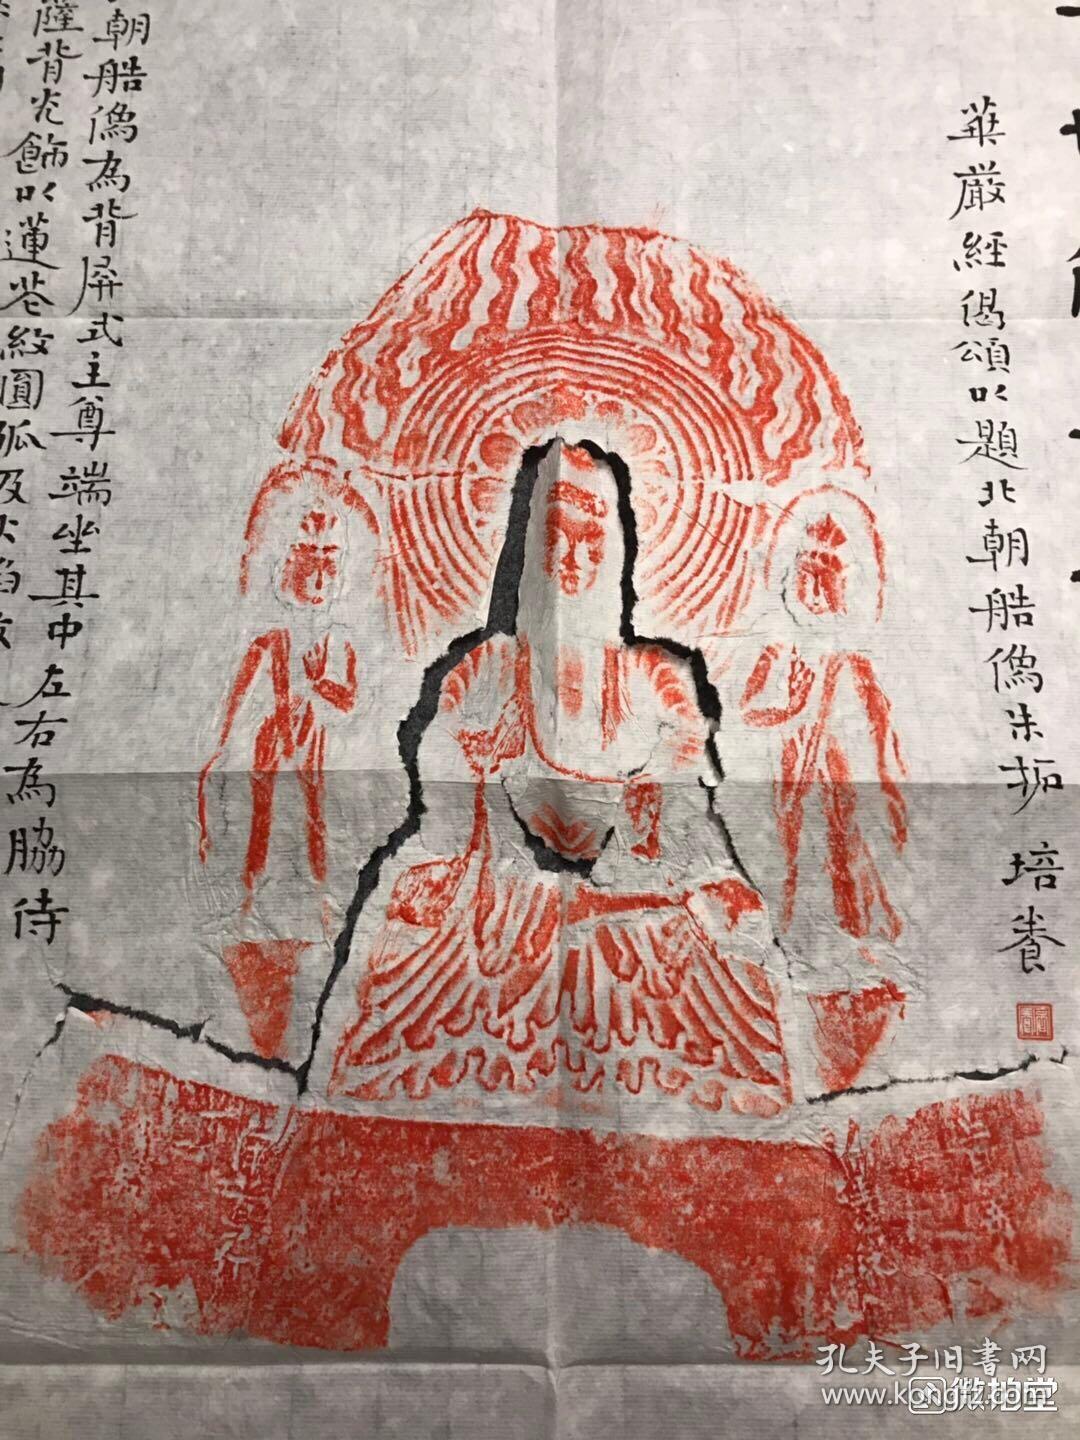 華厳經偈頌㕥題北朝艁像朱拓 培養
朝艁像為背屏式主尊端坐其中左右為脇侍
薩背光飾㕥蓮花紋圓弧及火焰紋
孔夫子旧書网
www.kongfz.com
微拍堂